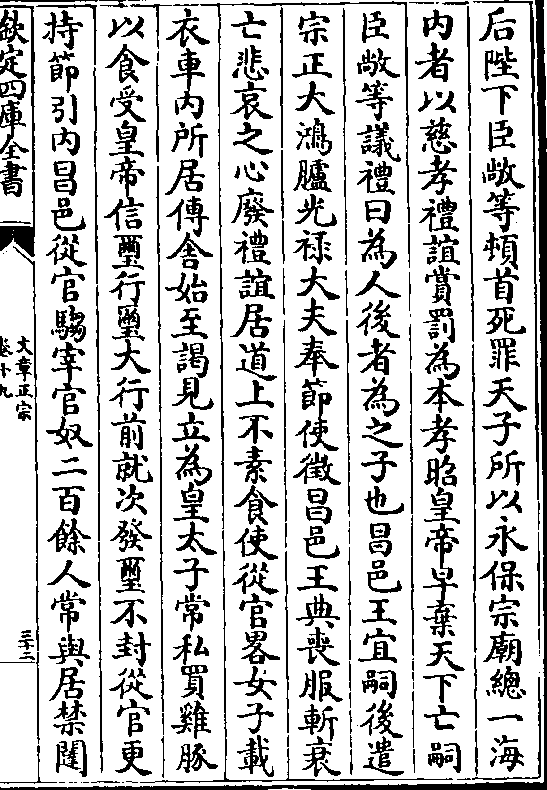 后陛下臣敞等頓首死罪天子所以永保宗廟總一海
内者以慈孝禮誼賞罰為本孝昭皇帝早棄天下亡嗣
臣敞等議禮曰為人後者為之子也昌邑王宜嗣後遣
宗正大鴻臚光禄大夫奉節使徵昌邑王典喪服斬衰
亡悲哀之心廢禮誼居道上不素食使從官畧女子載
衣車内所居傳舍始至謁見立為皇太子常私買雞豚
以食受皇帝信璽行璽大行前就次發璽不封從官更
持節引内昌邑從官騶宰官奴二百餘人常與居禁闥
欽定四庫全書
文章正宗
卷十九
三十二